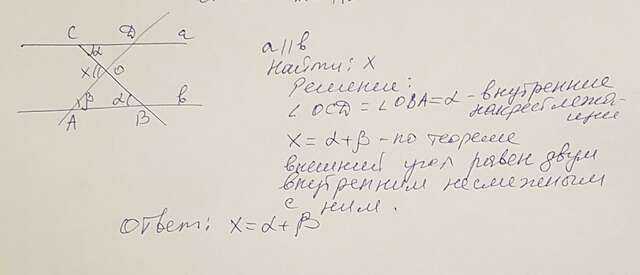 C D a
α
x O
β α b
A B
a || b
Найти: x
Решение:
∠OCD = ∠OBA = α - внутренние
накрест лежа-
щие
x = α+β - по теореме
внешний угол равен двум
внутренним несмежным
с ним.
Ответ: x = α+β